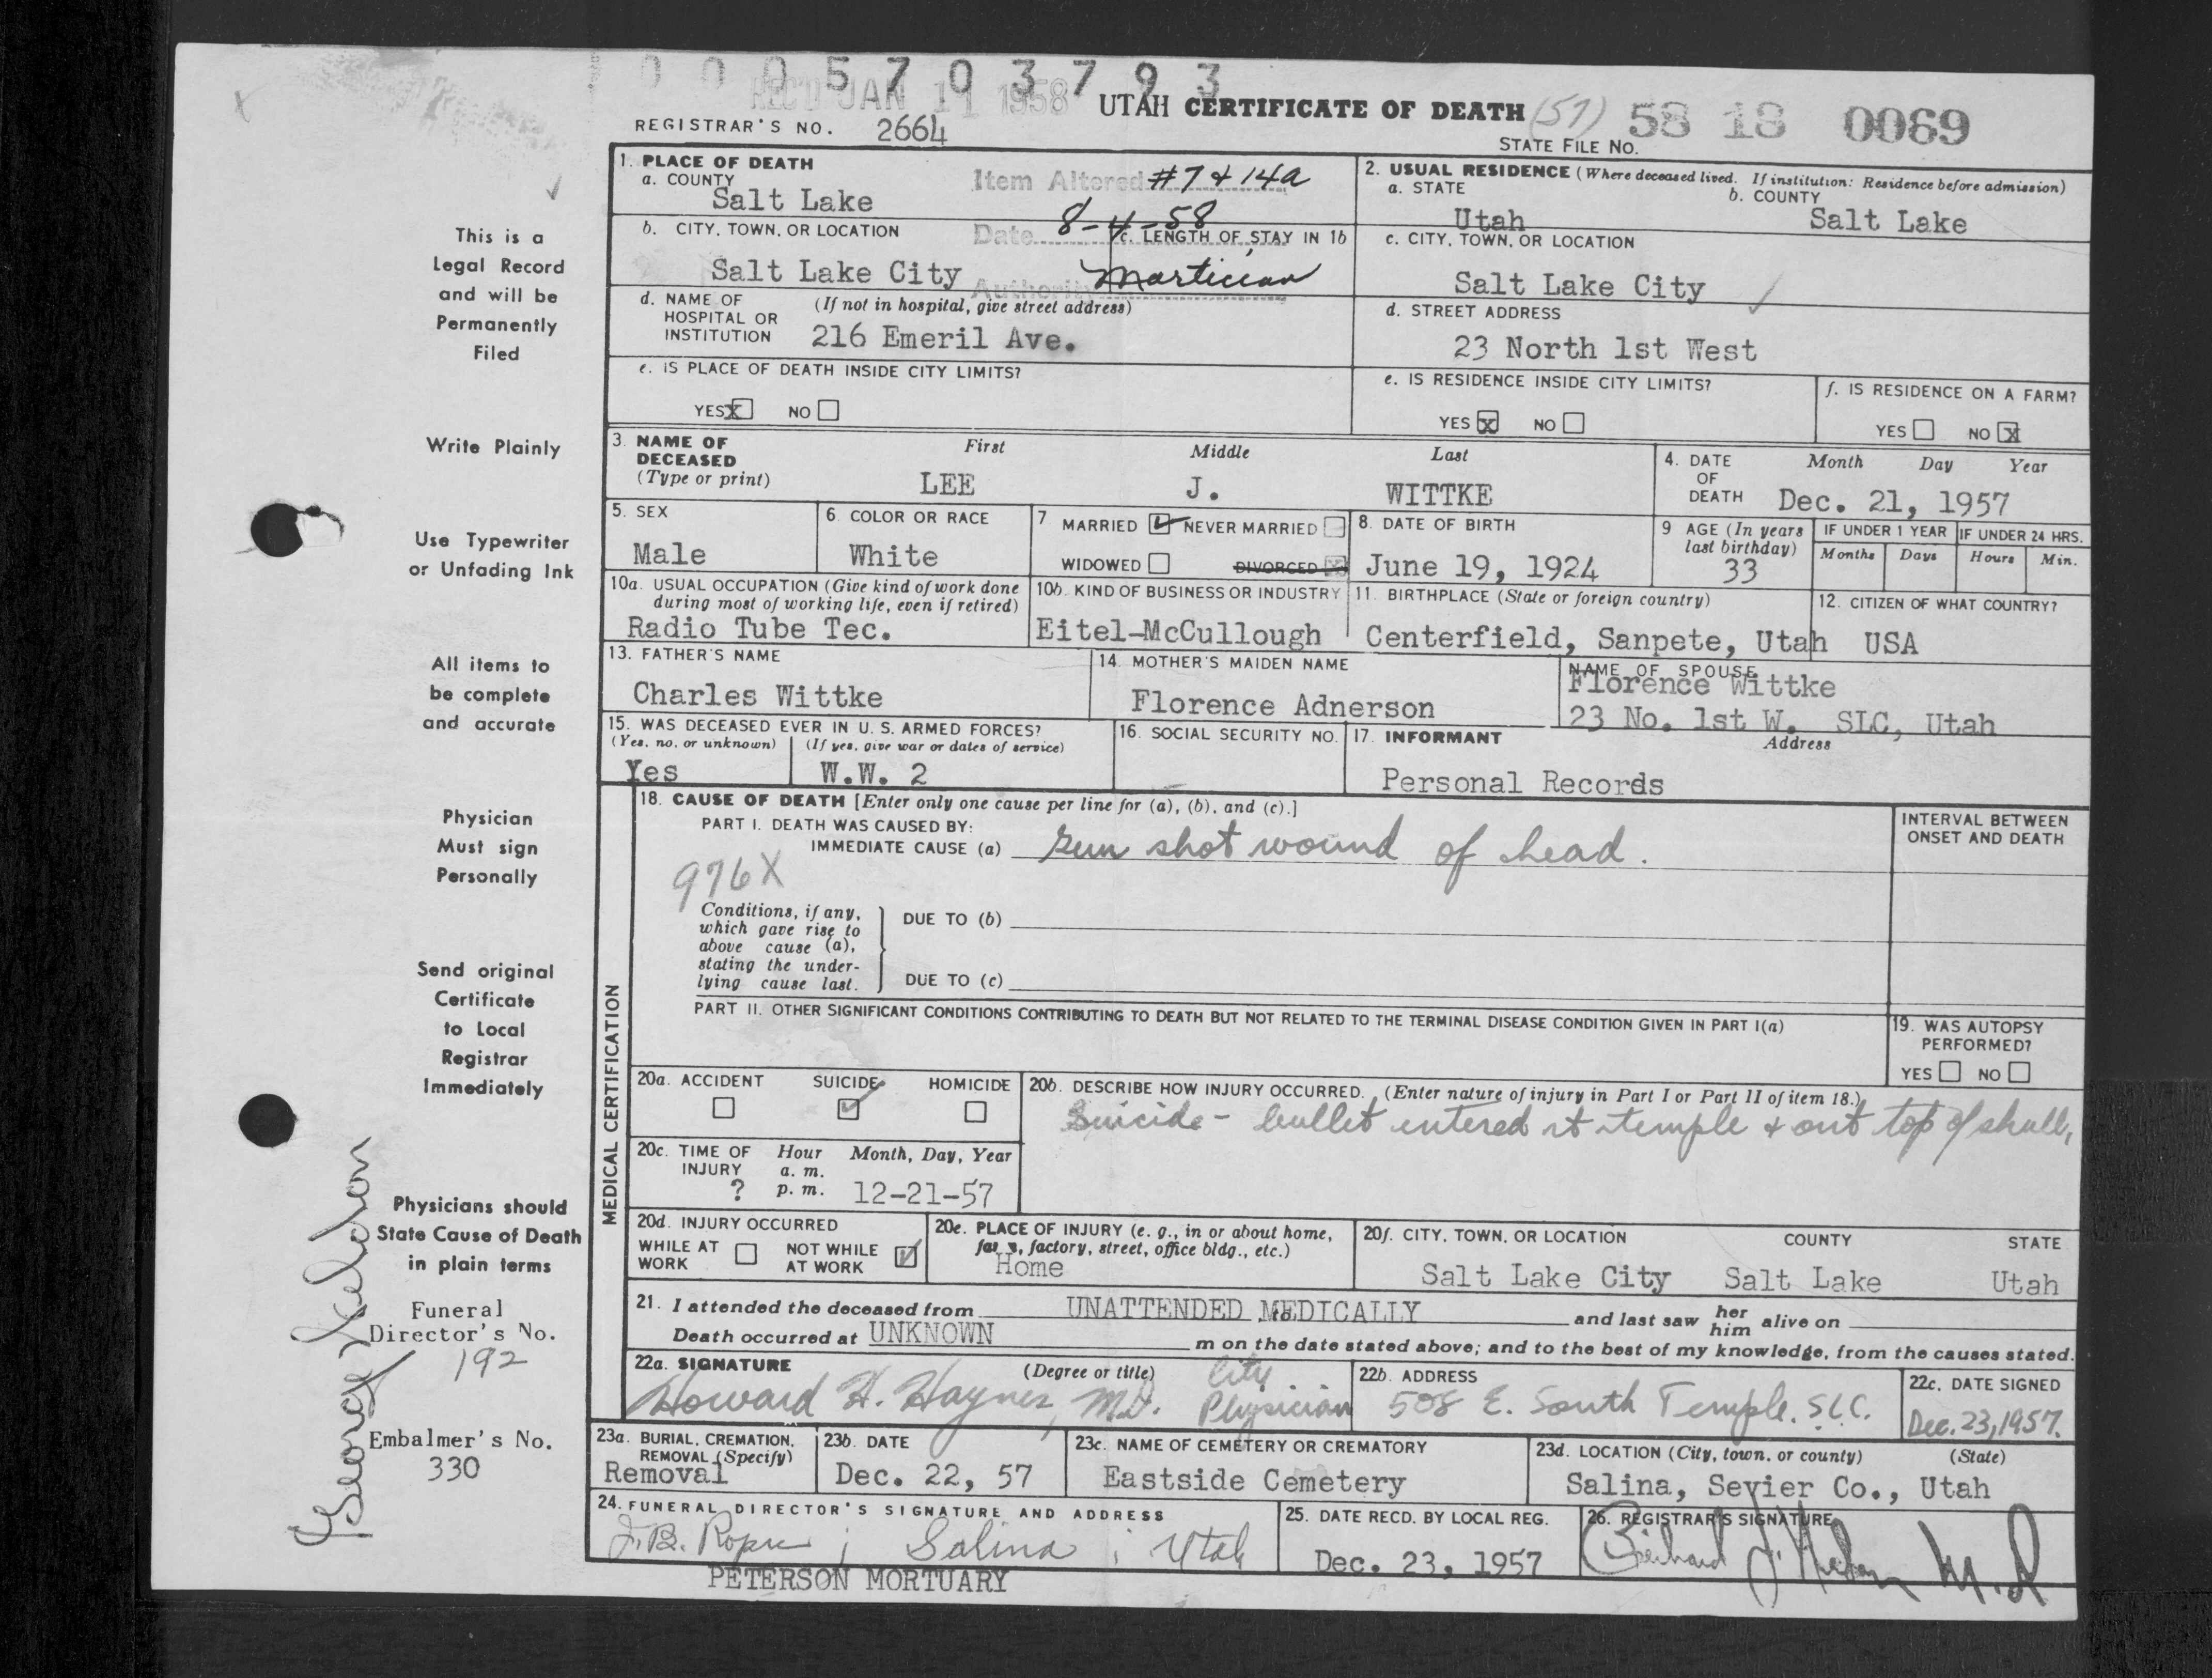 0005703793
REC'D JAN 11 1958
UTAH CERTIFICATE OF DEATH (57) 58 18 0069
REGISTRAR'S NO. 2664
STATE FILE NO.
1. PLACE OF DEATH
a. COUNTY
Salt Lake
Item Altered #7 & 14a
Date 8-4-58
Authority Mortician
2. USUAL RESIDENCE (Where deceased lived. If institution: Residence before admission)
a. STATE
Utah
b. COUNTY
Salt Lake
b. CITY, TOWN, OR LOCATION
Salt Lake City
c. LENGTH OF STAY IN 1b
c. CITY, TOWN, OR LOCATION
Salt Lake City
d. NAME OF HOSPITAL OR INSTITUTION
(If not in hospital, give street address)
216 Emeril Ave.
d. STREET ADDRESS
23 North 1st West
e. IS PLACE OF DEATH INSIDE CITY LIMITS?
YES X NO
e. IS RESIDENCE INSIDE CITY LIMITS?
YES X NO
f. IS RESIDENCE ON A FARM?
YES NO X
3. NAME OF DECEASED
(Type or print)
First Middle Last
LEE J. WITTKE
4. DATE OF DEATH
Month Day Year
Dec. 21, 1957
5. SEX
Male
6. COLOR OR RACE
White
7. MARRIED ✓ NEVER MARRIED
WIDOWED DIVORCED
8. DATE OF BIRTH
June 19, 1924
9 AGE (In years last birthday)
33
IF UNDER 1 YEAR
Months Days
IF UNDER 24 HRS.
Hours Min.
10a. USUAL OCCUPATION (Give kind of work done during most of working life, even if retired)
Radio Tube Tec.
10b. KIND OF BUSINESS OR INDUSTRY
Eitel-McCullough
11. BIRTHPLACE (State or foreign country)
Centerfield, Sanpete, Utah
12. CITIZEN OF WHAT COUNTRY?
USA
13. FATHER'S NAME
Charles Wittke
14. MOTHER'S MAIDEN NAME
Florence Adnerson
NAME OF SPOUSE
Florence Wittke
23 No. 1st W. SLC, Utah
15. WAS DECEASED EVER IN U. S. ARMED FORCES?
(Yes, no, or unknown) (If yes, give war or dates of service)
Yes W.W. 2
16. SOCIAL SECURITY NO.
17. INFORMANT Address
Personal Records
MEDICAL CERTIFICATION
18. CAUSE OF DEATH [Enter only one cause per line for (a), (b), and (c).]
PART I. DEATH WAS CAUSED BY:
IMMEDIATE CAUSE (a) Gun shot wound of head.
976X
Conditions, if any, which gave rise to above cause (a), stating the underlying cause last.
DUE TO (b)
DUE TO (c)
INTERVAL BETWEEN ONSET AND DEATH
PART II. OTHER SIGNIFICANT CONDITIONS CONTRIBUTING TO DEATH BUT NOT RELATED TO THE TERMINAL DISEASE CONDITION GIVEN IN PART I(a)
19. WAS AUTOPSY PERFORMED?
YES NO
20a. ACCIDENT SUICIDE ✓ HOMICIDE
20b. DESCRIBE HOW INJURY OCCURRED. (Enter nature of injury in Part I or Part II of item 18.)
Suicide - bullet entered rt temple & out top of skull,
20c. TIME OF INJURY
Hour Month, Day, Year
a. m.
? p. m. 12-21-57
20d. INJURY OCCURRED
WHILE AT WORK NOT WHILE AT WORK ✓
20e. PLACE OF INJURY (e. g., in or about home, farm, factory, street, office bldg., etc.)
Home
20f. CITY, TOWN, OR LOCATION COUNTY STATE
Salt Lake City Salt Lake Utah
21. I attended the deceased from UNATTENDED MEDICALLY to and last saw her him alive on
Death occurred at UNKNOWN m on the date stated above; and to the best of my knowledge, from the causes stated.
22a. SIGNATURE (Degree or title)
Howard H. Haynes, M.D. City Physician
22b. ADDRESS
508 E. South Temple. S.L.C.
22c. DATE SIGNED
Dec. 23, 1957.
23a. BURIAL, CREMATION, REMOVAL (Specify)
Removal
23b. DATE
Dec. 22, 57
23c. NAME OF CEMETERY OR CREMATORY
Eastside Cemetery
23d. LOCATION (City, town, or county) (State)
Salina, Sevier Co., Utah
24. FUNERAL DIRECTOR'S SIGNATURE AND ADDRESS
J.B. Roper ; Salina ; Utah
PETERSON MORTUARY
25. DATE RECD. BY LOCAL REG.
Dec. 23, 1957
26. REGISTRAR'S SIGNATURE
M.D
This is a
Legal Record
and will be
Permanently
Filed
Write Plainly
Use Typewriter
or Unfading Ink
All items to
be complete
and accurate
Physician
Must sign
Personally
Send original
Certificate
to Local
Registrar
Immediately
Physicians should
State Cause of Death
in plain terms
Funeral
Director's No.
192
Embalmer's No.
330
George